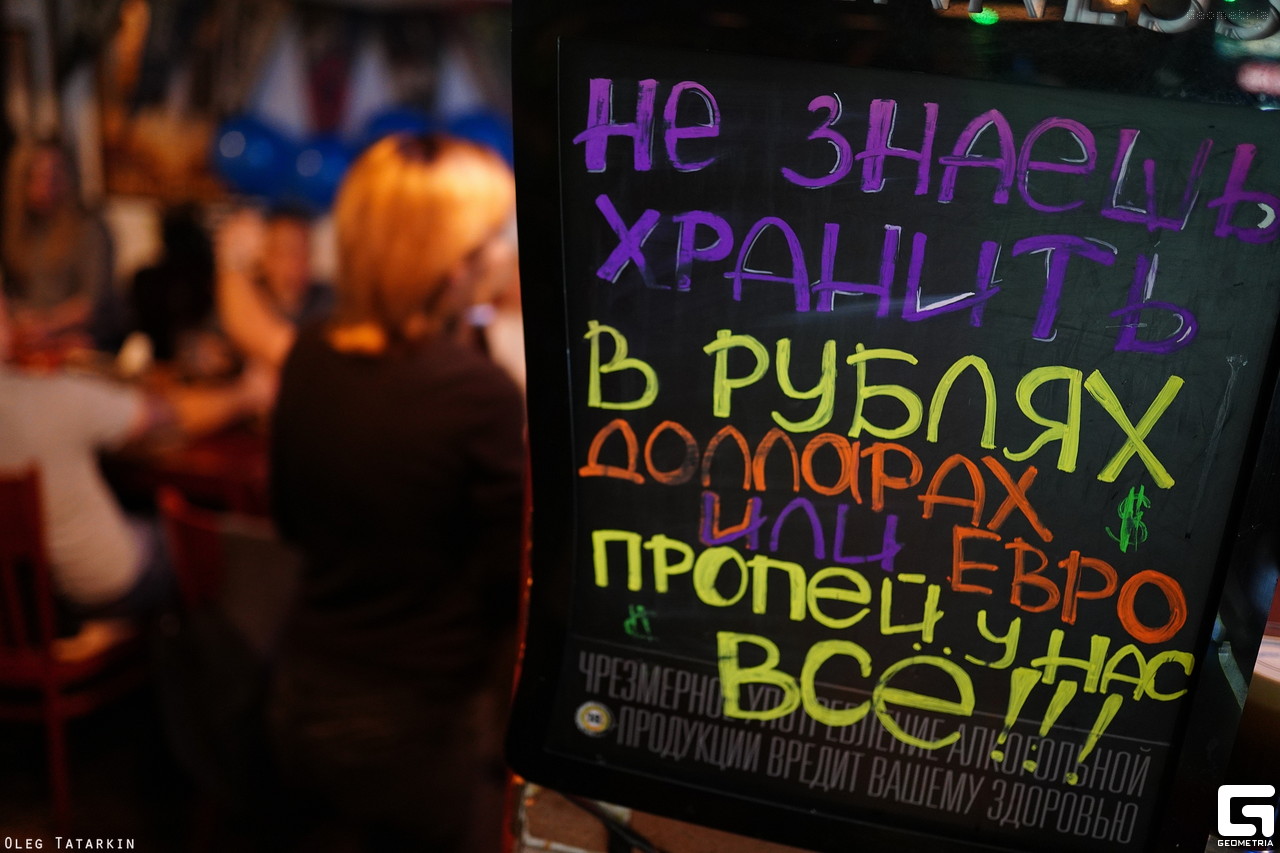 Geometria
Не знаешь
хранить
в рублях
долларах
$
или
евро
пропей у нас
$
всё!!!
ЧРЕЗМЕРНОЕ УПОТРЕБЛЕНИЕ АЛКОГОЛЬНОЙ
ПРОДУКЦИИ ВРЕДИТ ВАШЕМУ ЗДОРОВЬЮ
18
OLEG TATARKIN
GEOMETRIA